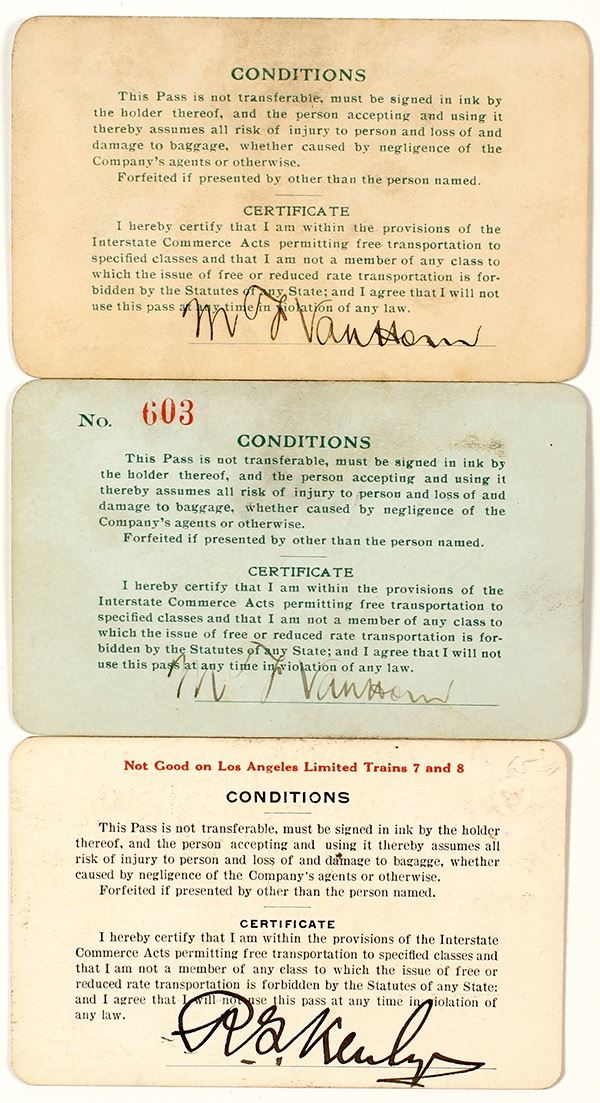 CONDITIONS
This Pass is not transferable, must be signed in ink by
the holder thereof, and the person accepting and using it
thereby assumes all risk of injury to person and loss of and
damage to baggage, whether caused by negligence of the
Company's agents or otherwise.
Forfeited if presented by other than the person named.
CERTIFICATE
I hereby certify that I am within the provisions of the
Interstate Commerce Acts permitting free transportation to
specified classes and that I am not a member of any class to
which the issue of free or reduced rate transportation is for-
bidden by the Statutes of any State; and I agree that I will not
use this pass at any time in violation of any law.
M F VanHorn
No. 603
CONDITIONS
This Pass is not transferable, must be signed in ink by
the holder thereof, and the person accepting and using it
thereby assumes all risk of injury to person and loss of and
damage to baggage, whether caused by negligence of the
Company's agents or otherwise.
Forfeited if presented by other than the person named.
CERTIFICATE
I hereby certify that I am within the provisions of the
Interstate Commerce Acts permitting free transportation to
specified classes and that I am not a member of any class to
which the issue of free or reduced rate transportation is for-
bidden by the Statutes of any State; and I agree that I will not
use this pass at any time in violation of any law.
M F VanHorn
Not Good on Los Angeles Limited Trains 7 and 8
65
CONDITIONS
This Pass is not transferable, must be signed in ink by the holder
thereof, and the person accepting and using it thereby assumes all
risk of injury to person and loss of and damage to bagagge, whether
caused by negligence of the Company's agents or otherwise.
Forfeited if presented by other than the person named.
CERTIFICATE
I hereby certify that I am within the provisions of the Interstate
Commerce Acts permitting free transportation to specified classes and
that I am not a member of any class to which the issue of free or
reduced rate transportation is forbidden by the Statutes of any State:
and I agree that I will not use this pass at any time in violation of
any law.
R. G. Kenly